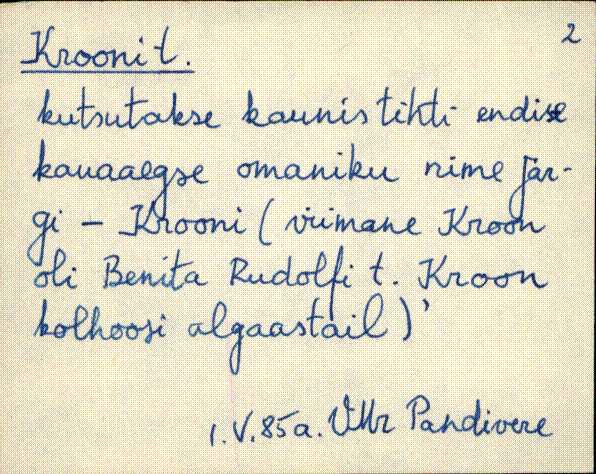 2
Krooni t.
kutsutakse kaunis tihti endise
kauaaegse omaniku nime jär-
gi - Krooni (viimane Kroon
oli Benita Rudolfi t. Kroon
kolhoosi algaastail)'
1.V.85a. VMr Pandivere